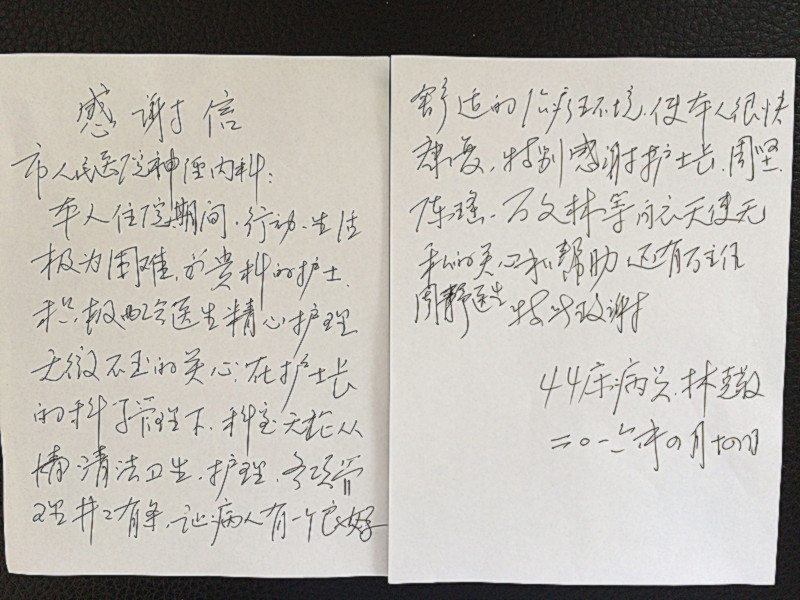 感谢信
市人民医院神经内科:
本人住院期间,行动、生活
极为困难,贵科的护士
积极配合医生精心护理
无微不至的关心,在护士长
的科学管理下,科室无论从
清洁卫生,护理,各项管
理井井有条,让病人有一个良好
舒适的治疗环境,使本人很快
康复,特别感谢护士长、周坚、
陈瑶、万文林等白衣天使无
私的关心和帮助,还有万主任
周静医生 特此致谢
44床病员.林
二0一六年四月十四日